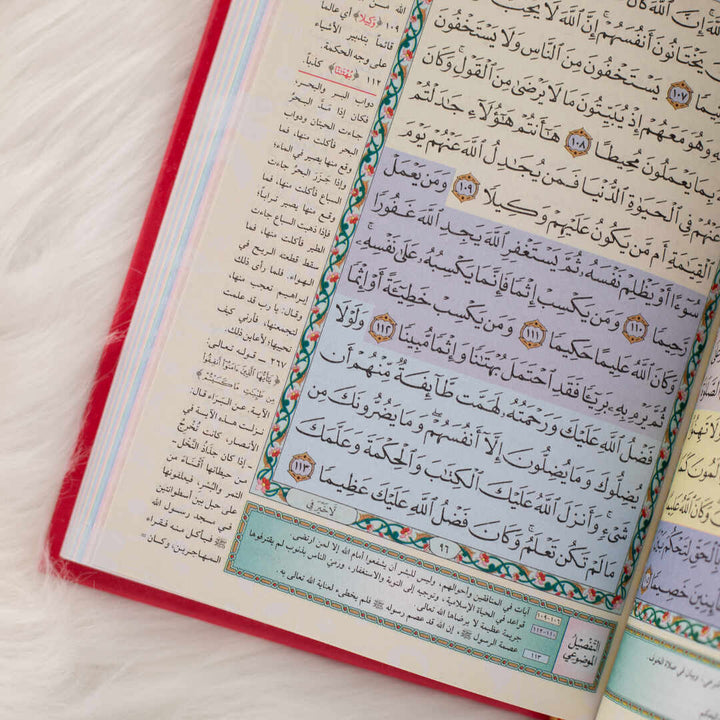 إِنَّ ٱللَّهَ كَانَ
يَخْتَانُونَ أَنفُسَهُمْ إِنَّ ٱللَّهَ لَا يُحِبُّ
١٠٧ يَسْتَخْفُونَ مِنَ ٱلنَّاسِ وَلَا يَسْتَخْفُونَ
وَهُوَ مَعَهُمْ إِذْ يُبَيِّتُونَ مَا لَا يَرْضَىٰ مِنَ ٱلْقَوْلِ وَكَانَ
بِمَا يَعْمَلُونَ مُحِيطًا ١٠٨ هَٰٓأَنتُمْ هَٰٓؤُلَآءِ جَٰدَلْتُمْ
عَنْهُمْ فِى ٱلْحَيَوٰةِ ٱلدُّنْيَا فَمَن يُجَٰدِلُ ٱللَّهَ عَنْهُمْ يَوْمَ
ٱلْقِيَٰمَةِ أَم مَّن يَكُونُ عَلَيْهِمْ وَكِيلًا ١٠٩ وَمَن يَعْمَلْ
سُوٓءًا أَوْ يَظْلِمْ نَفْسَهُۥ ثُمَّ يَسْتَغْفِرِ ٱللَّهَ يَجِدِ ٱللَّهَ غَفُورًا
رَّحِيمًا ١١٠ وَمَن يَكْسِبْ إِثْمًا فَإِنَّمَا يَكْسِبُهُۥ عَلَىٰ نَفْسِهِۦ
وَكَانَ ٱللَّهُ عَلِيمًا حَكِيمًا ١١١ وَمَن يَكْسِبْ خَطِيٓـَٔةً أَوْ إِثْمًا
ثُمَّ يَرْمِ بِهِۦ بَرِيٓـًٔا فَقَدِ ٱحْتَمَلَ بُهْتَٰنًا وَإِثْمًا مُّبِينًا ١١٢ وَلَوْلَا
فَضْلُ ٱللَّهِ عَلَيْكَ وَرَحْمَتُهُۥ لَهَمَّت طَّآئِفَةٌ مِّنْهُمْ أَن
يُضِلُّوكَ وَمَا يُضِلُّونَ إِلَّآ أَنفُسَهُمْ وَمَا يَضُرُّونَكَ مِن
شَىْءٍ وَأَنزَلَ ٱللَّهُ عَلَيْكَ ٱلْكِتَٰبَ وَٱلْحِكْمَةَ وَعَلَّمَكَ
مَا لَمْ تَكُن تَعْلَمُ وَكَانَ فَضْلُ ٱللَّهِ عَلَيْكَ عَظِيمًا ١١٣
٩٦
لَا خَيْرَ فِى
﴿وَكِيلًا﴾ أي عالما
قائماً بتدبير الأشياء
على وجه الحكمة.
١١٢ ﴿بُهْتَٰنًا﴾ كذباً.
دواب البر والبحر،
فكان إذا مَدَّ البحر
جاءت الحيتان ودواب
البحر فأكلت منها، فما
وقع منها يصير في الماء؛
وإذا جَزَرَ البحرُ جاءت
السباع فأكلت منها، فما
وقع منها يصير تراباً؛
فإذا ذهبت السباع جاءت
الطير فأكلت منها، فما
سقط قطعته الريح في
الهواء، فلما رأى ذلك
إبراهيم تعجب منها،
وقال: يا رب قد علمت
لتجمعنها، فأرني كيف
تحييها؛ لأعاين ذلك.
٢٦٧ - قوله تعالى
﴿يَٰٓأَيُّهَا ٱلَّذِينَ ءَامَنُوٓا۟ أَنفِقُوا۟
مِن طَيِّبَٰتِ مَا كَسَبْتُمْ﴾
الآية عن البَرَاء، قال:
نزلت هذه الآية في
الأنصار، كانت تُخْرِجُ
- إذا كان جذاذ النخل -
من حيطانها أَقْنَاءً من
التمر والبُسْر، فيعلقونها
على حبل بين أسطوانتين
في مسجد رسول الله
ﷺ، فيأكل منه فقراء
المهاجرين، وكان =
التفصيل الموضوعي
١٠٦-١٠٩ آيات في المنافقين وأحوالهم، وليس للبشر أن يشفعوا أمام الله إلا لمن ارتضى.
١١٠-١١٢ قواعد في الحياة الإسلامية، وتوجيه إلى التوبة والاستغفار، ورمي الناس بذنوب لم يقترفوها جريمة عظيمة لا يرضاها الله تعالى.
١١٣ عصمة الرسول ﷺ، إن الله قد عصم رسوله ﷺ فلم يخطىء لعناية الله تعالى به.